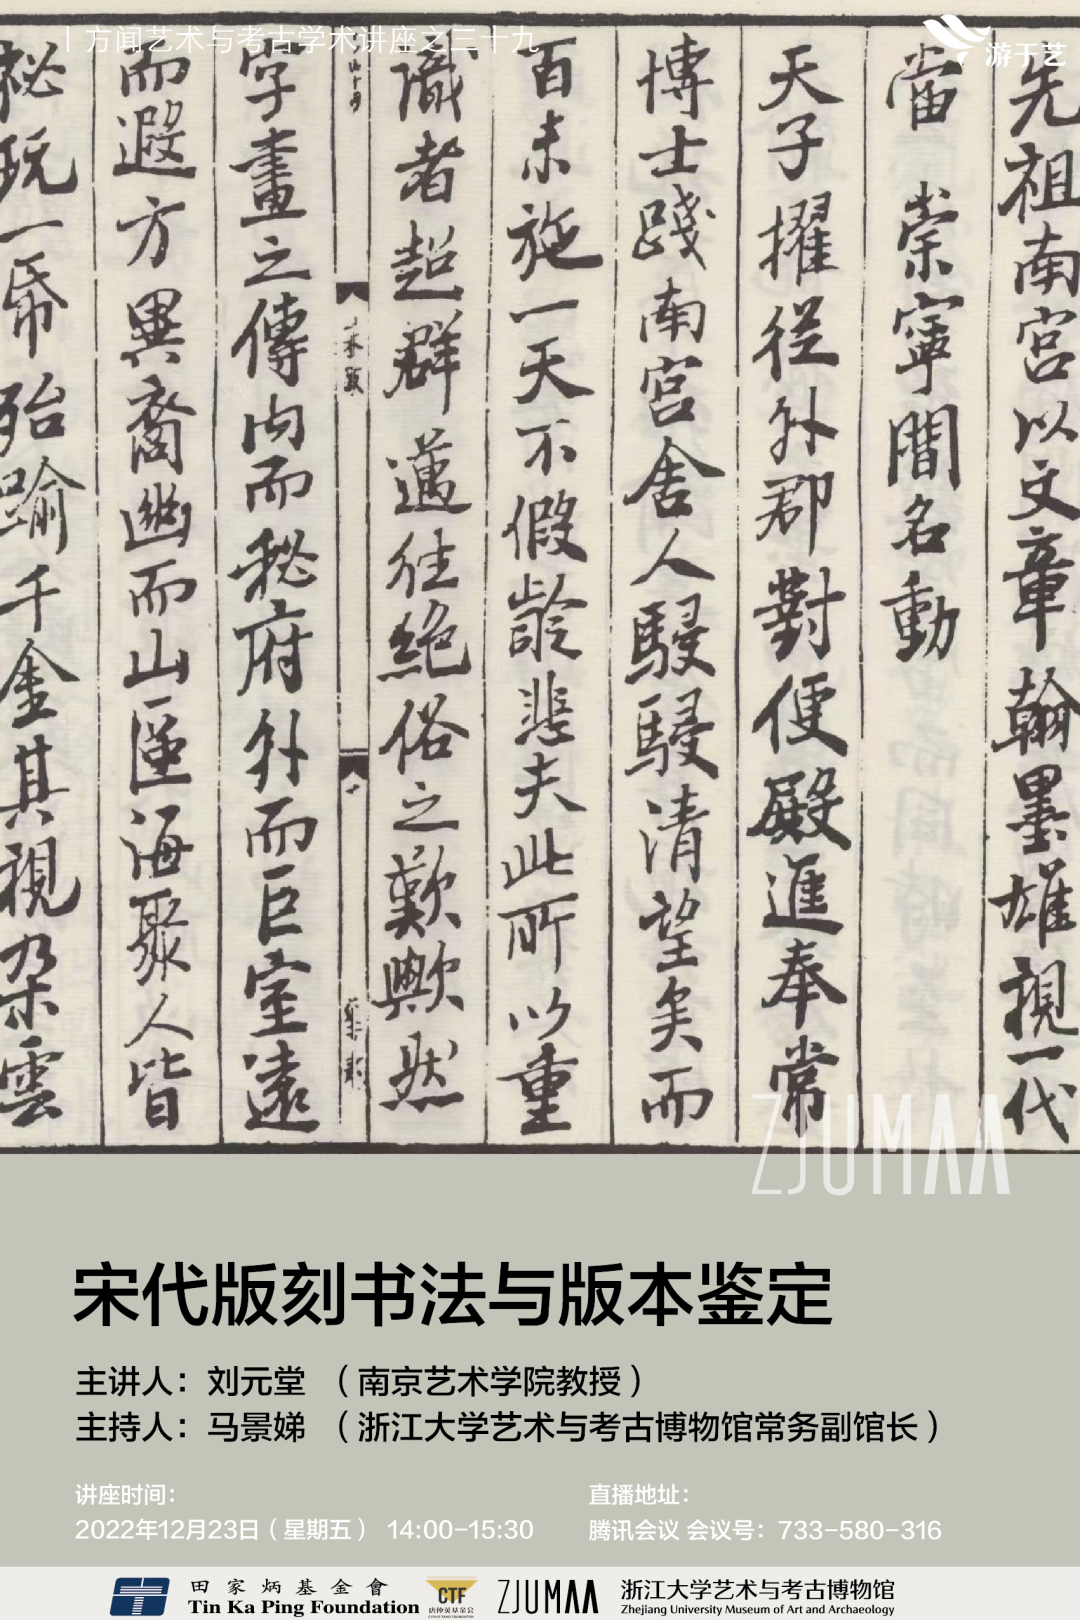 方闻艺术与考古学术讲座之三十九
游于艺
先祖南宮以文章翰墨雄視一代
當 崇寧間名動
天子擢從外郡對便殿進奉常
博士踐南宮舍人駸駸清望矣而
百未施一天不假齡悲夫此所以重
識者超群邁往絶俗之歎歟然
字畫之傳内而秘府外而巨室遠
而遐方異裔幽而山區海聚人皆
祕玩一帋殆踰千金其視朶雲
ZJUMAA
宋代版刻书法与版本鉴定
主讲人：刘元堂 （南京艺术学院教授）
主持人：马景娣 （浙江大学艺术与考古博物馆常务副馆长）
讲座时间：
2022年12月23日（星期五） 14:00-15:30
直播地址：
腾讯会议 会议号：733-580-316
田家炳基金會
Tin Ka Ping Foundation
CTF
唐仲英基金会
ZJUMAA
浙江大学艺术与考古博物馆
Zhejiang University Museum of Art and Archaeology